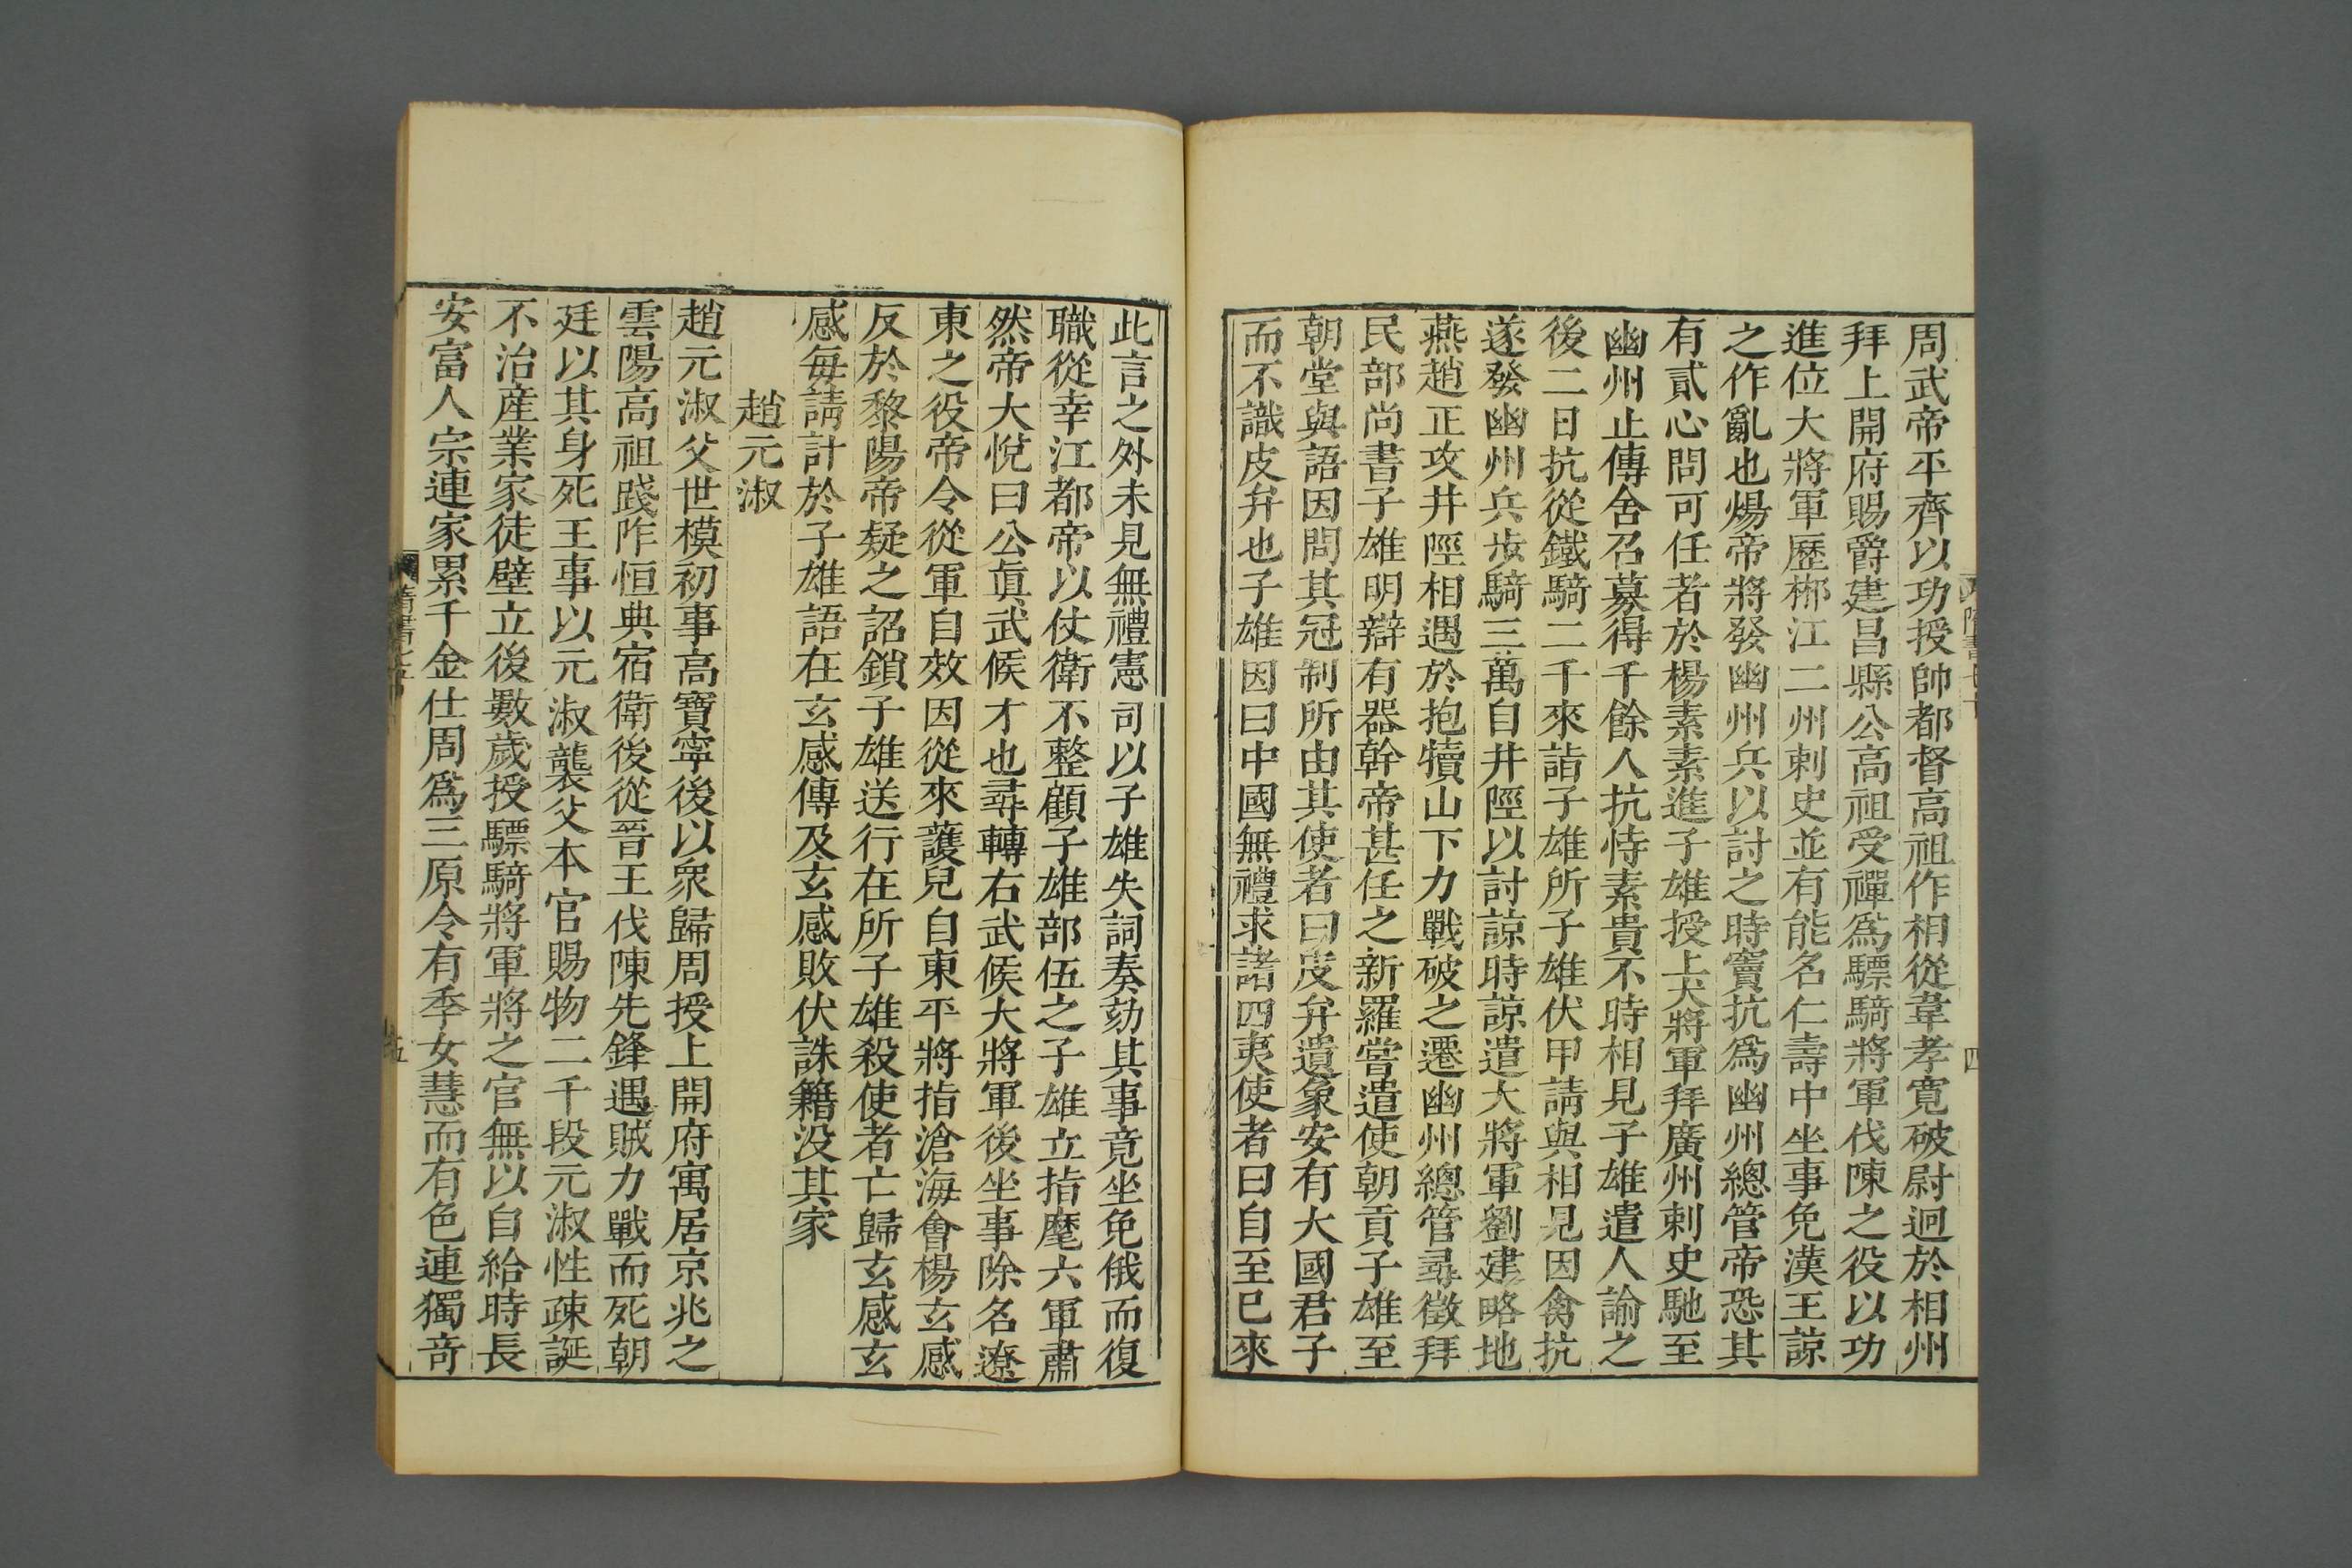 周武帝平齊以功授帥都督高祖作相從韋孝寬破尉迥於相州
拜上開府賜爵建昌縣公高祖受禪爲驃騎將軍伐陳之役以功
進位大將軍歷郴江二州刺史並有能名仁壽中坐事免漢王諒
之作亂也煬帝將發幽州兵以討之時竇抗爲幽州總管帝恐其
有貳心問可任者於楊素素進子雄授上大將軍拜廣州刺史馳至
幽州止傳舍召募得千餘人抗恃素貴不時相見子雄遣人諭之
後二日抗從鐵騎二千來詣子雄所子雄伏甲請與相見因禽抗
遂發幽州兵步騎三萬自井陘以討諒時諒遣大將軍劉建略地
燕趙正攻井陘相遇於抱犢山下力戰破之遷幽州總管尋徵拜
民部尚書子雄明辯有器幹帝甚任之新羅嘗遣使朝貢子雄至
朝堂與語因問其冠制所由其使者曰皮弁遺象安有大國君子
而不識皮弁也子雄因曰中國無禮求諸四夷使者曰自至已來
此言之外未見無禮憲司以子雄失詞奏劾其事竟坐免俄而復
職從幸江都帝以仗衛不整顧子雄部伍之子雄立指麾六軍肅
然帝大悅曰公眞武候才也尋轉右武候大將軍後坐事除名遼
東之役帝令從軍自效因從來護兒自東平將指滄海會楊玄感
反於黎陽帝疑之詔鎖子雄送行在所子雄殺使者亡歸玄感玄
感每請計於子雄語在玄感傳及玄感敗伏誅籍没其家
趙元淑
趙元淑父世模初事高寶寧後以衆歸周授上開府寓居京兆之
雲陽高祖踐阼恒典宿衛後從晉王伐陳先鋒遇賊力戰而死朝
廷以其身死王事以元淑襲父本官賜物二千段元淑性疎誕
不治產業家徒壁立後數歲授驃騎將軍將之官無以自給時長
安富人宗連家累千金仕周爲三原令有季女慧而有色連獨奇